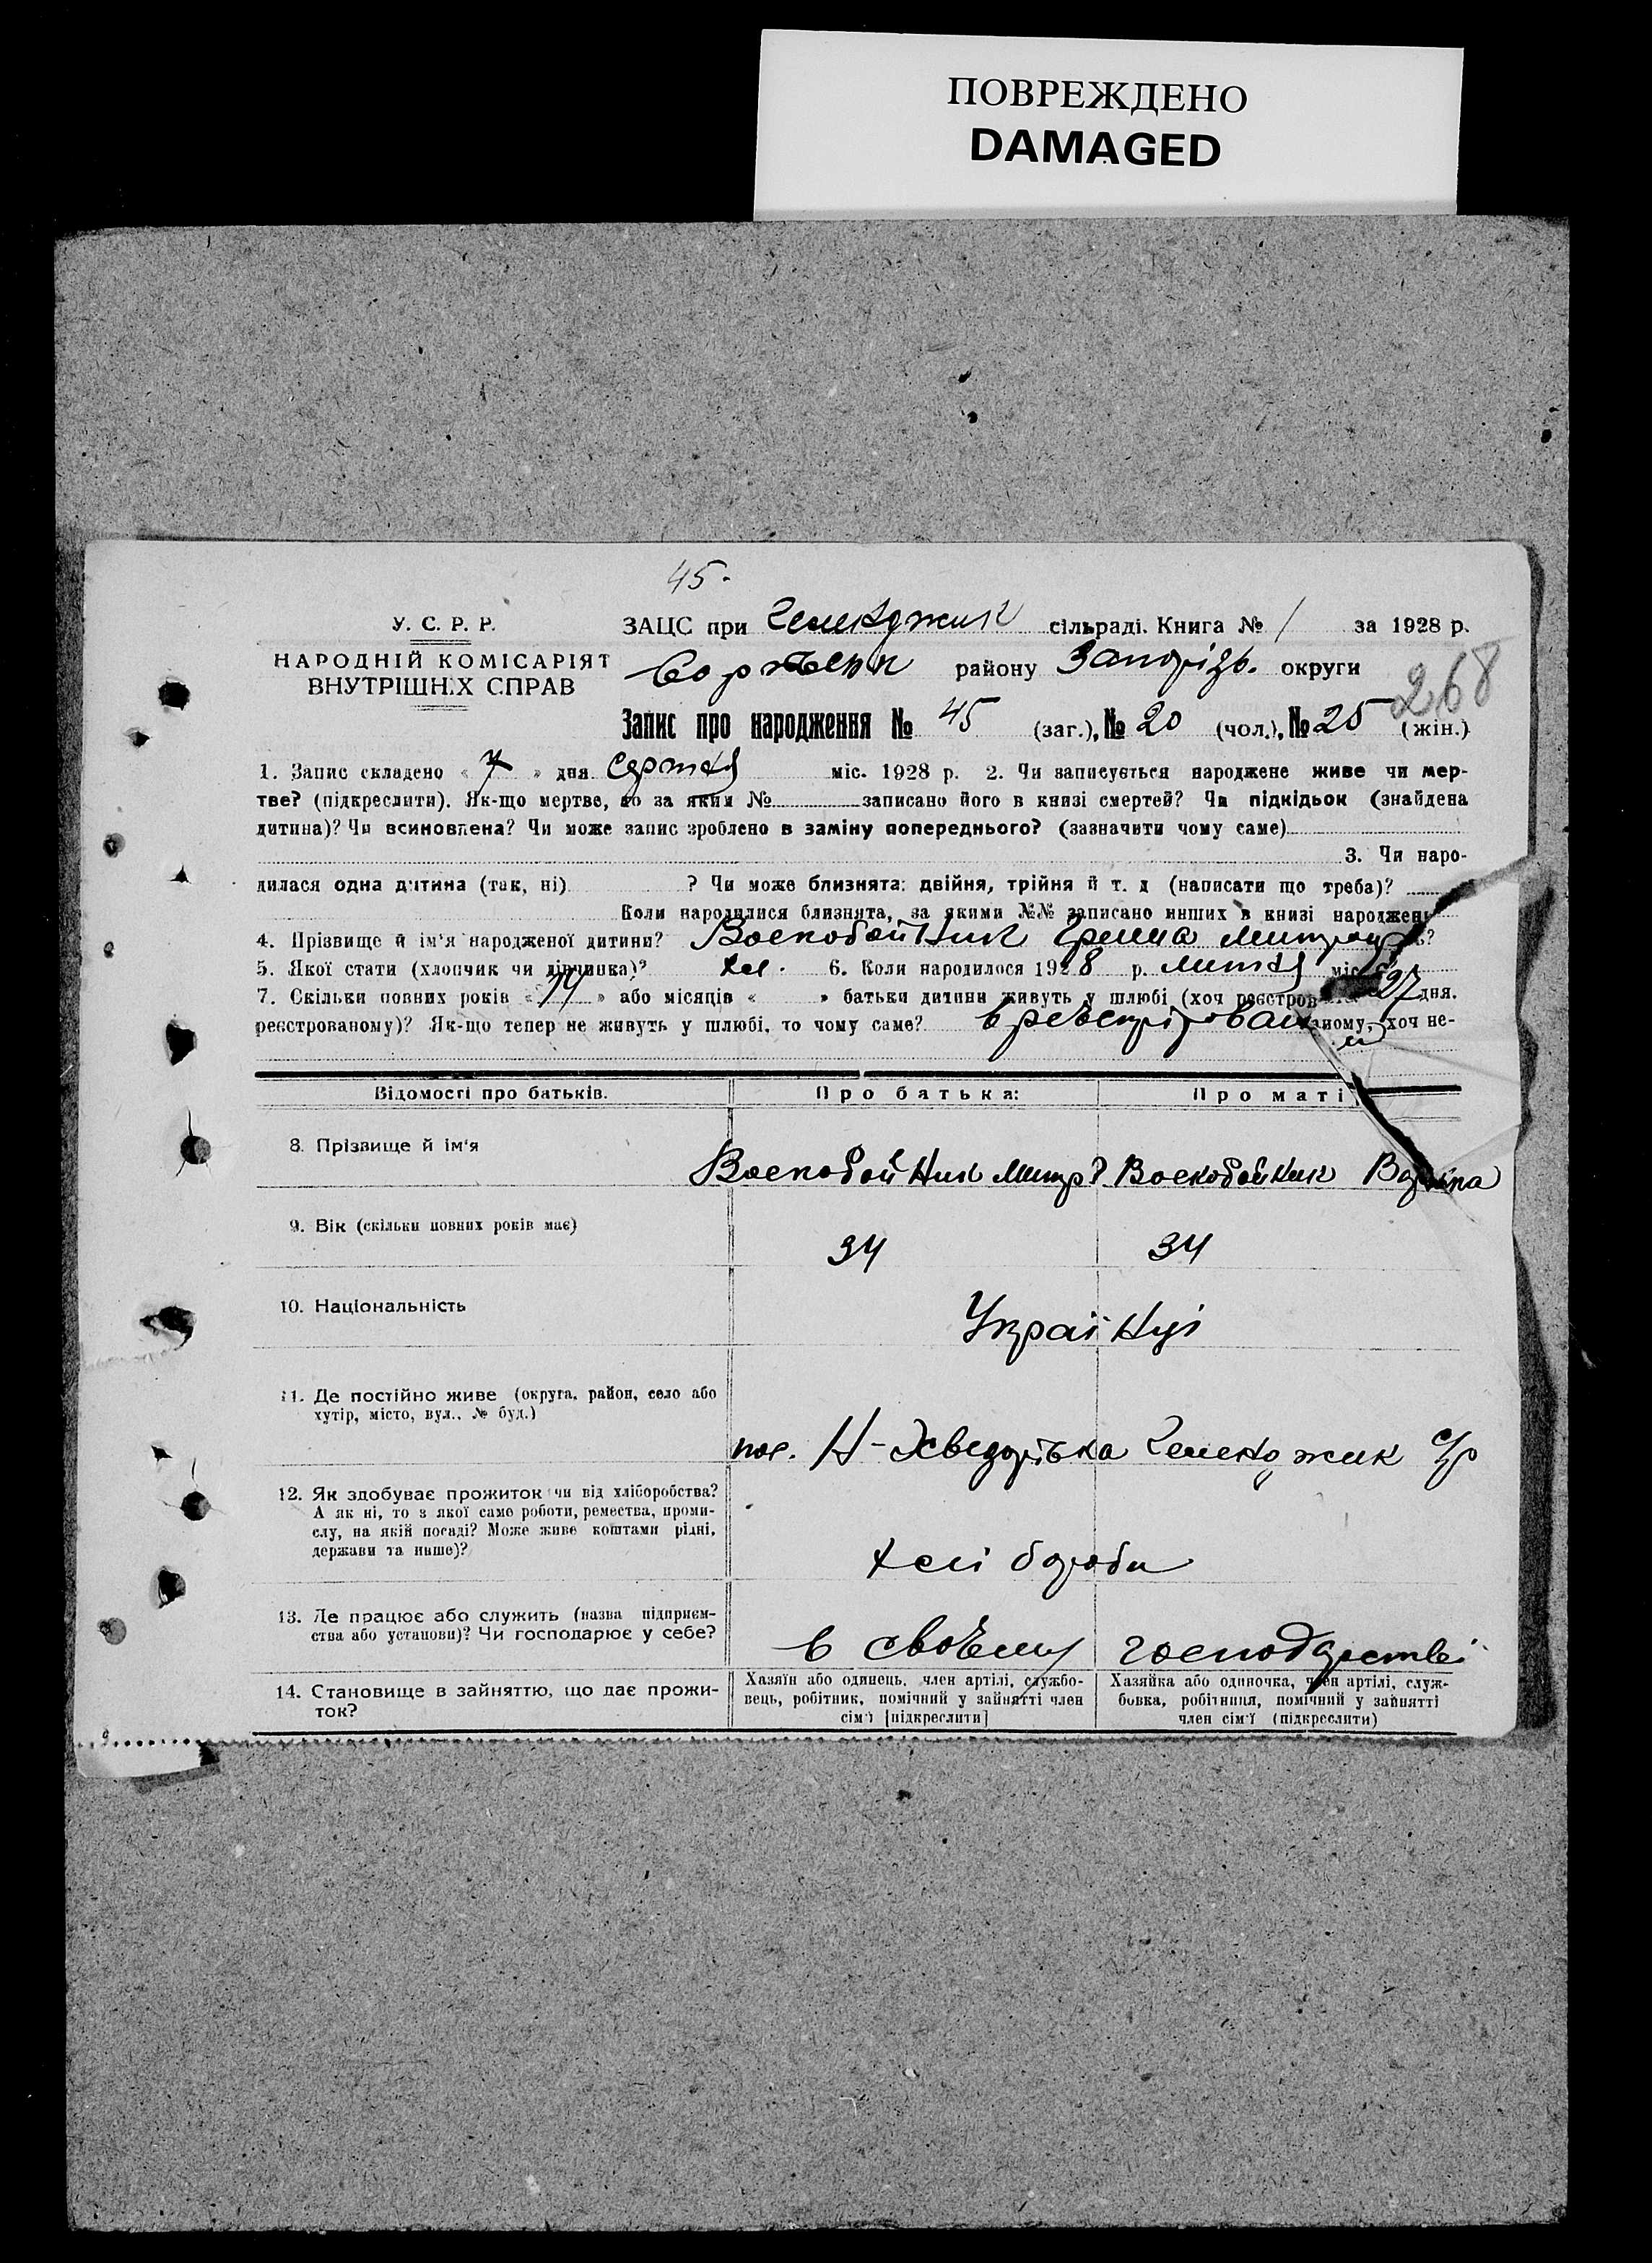 ПОВРЕЖДЕНО
DAMAGED
45.
У. С. Р. Р.
НАРОДНІЙ КОМІСАРІЯТ
ВНУТРІШНІХ СПРАВ
ЗАЦС при Гелендджик сільраді. Книга № 1 за 1928 р.
району Запорізь. округи
268
Запис про народження № 45 (заг.), № 20 (чол.), № 25 (жін.)
1. Запис складено « 7 » дня серпня міс. 1928 р. 2. Чи записується народжене живе чи мер-
тве? (підкреслити). Як-що мертве, то за яким № записано його в книзі смертей? Чи підкідьок (знайдена
дитина)? Чи всиновлена? Чи може запис зроблено в заміну попереднього? (зазначити чому саме)
3. Чи наро-
дилася одна дитина (так, ні) ? Чи може близнята: двійня, трійня й т. д (написати що треба)?
Коли народилися близнята, за якими №№ записано инших в книзі народжень?
4. Прізвище й ім'я народженої дитини? Воскобойник Гриша
5. Якої статі (хлопчик чи дівчинка)? хл. 6. Коли народилося 1928 р. липня міс. 27 дня.
7. Скільки повних років « 14 » або місяців « » батьки дитини живуть у шлюбі (хоч реєстрованому, хоч не-
реєстрованому)? Як-що тепер не живуть у шлюбі, то чому саме? в
Відомості про батьків.
Про батька:
Про матір
8. Прізвище й ім'я
Воскобойник Митр. Воскобойник
9. Вік (скільки повних років має)
34 34
10. Національність
Українці
11. Де постійно живе (округа, район, село або
хутір, місто, вул., № буд.)
пос. Н-Хведорівка Гелендджик с/р
12. Як здобуває прожиток чи від хліборобства?
А як ні, то з якої саме роботи, ремества, проми-
слу, на якій посаді? Може живе коштами рідні,
держави та инше)?
хлібороби
13. Де працює або служить (назва підприєм-
ства або установи)? Чи господарює у себе?
в своєму господарстві
14. Становище в зайняттю, що дає прожи-
ток?
Хазяїн або одинець, член артілі, службо-
вець, робітник, помічний у зайнятті член
сім'ї [підкреслити]
Хазяйка або одиночка, член артілі, служ-
бовка, робітниця, помічний у зайнятті
член сім'ї (підкреслити)